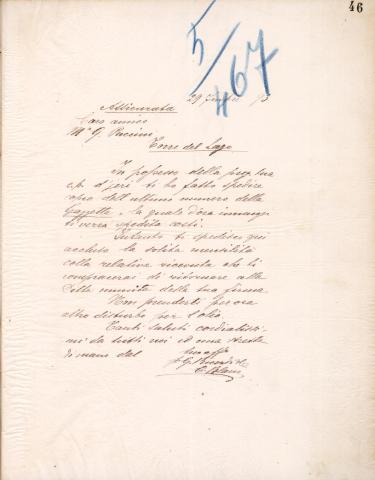 46
5/467
29
Assicurata
Caro amico
Mo G. Puccini
Torre del Lago
In possesso della preg. tua
c.p. d'jeri ti ho fatto spedire
copia dell'ultimo numero della
Gazzetta, la quale d'ora innanzi
ti verrà spedita costì.
Intanto ti spedisco qui
accluso la solita mensilità
colla relativa ricevuta che ti
compiacerai di ritornare alla
Ditta munita della tua firma.
Non prenderti per ora
altro disturbo per l'olio.
Tanti saluti cordialissi-
mi da tutti noi ed una stretta
di mano dal
tuo aff
p. G. Ricordi &C